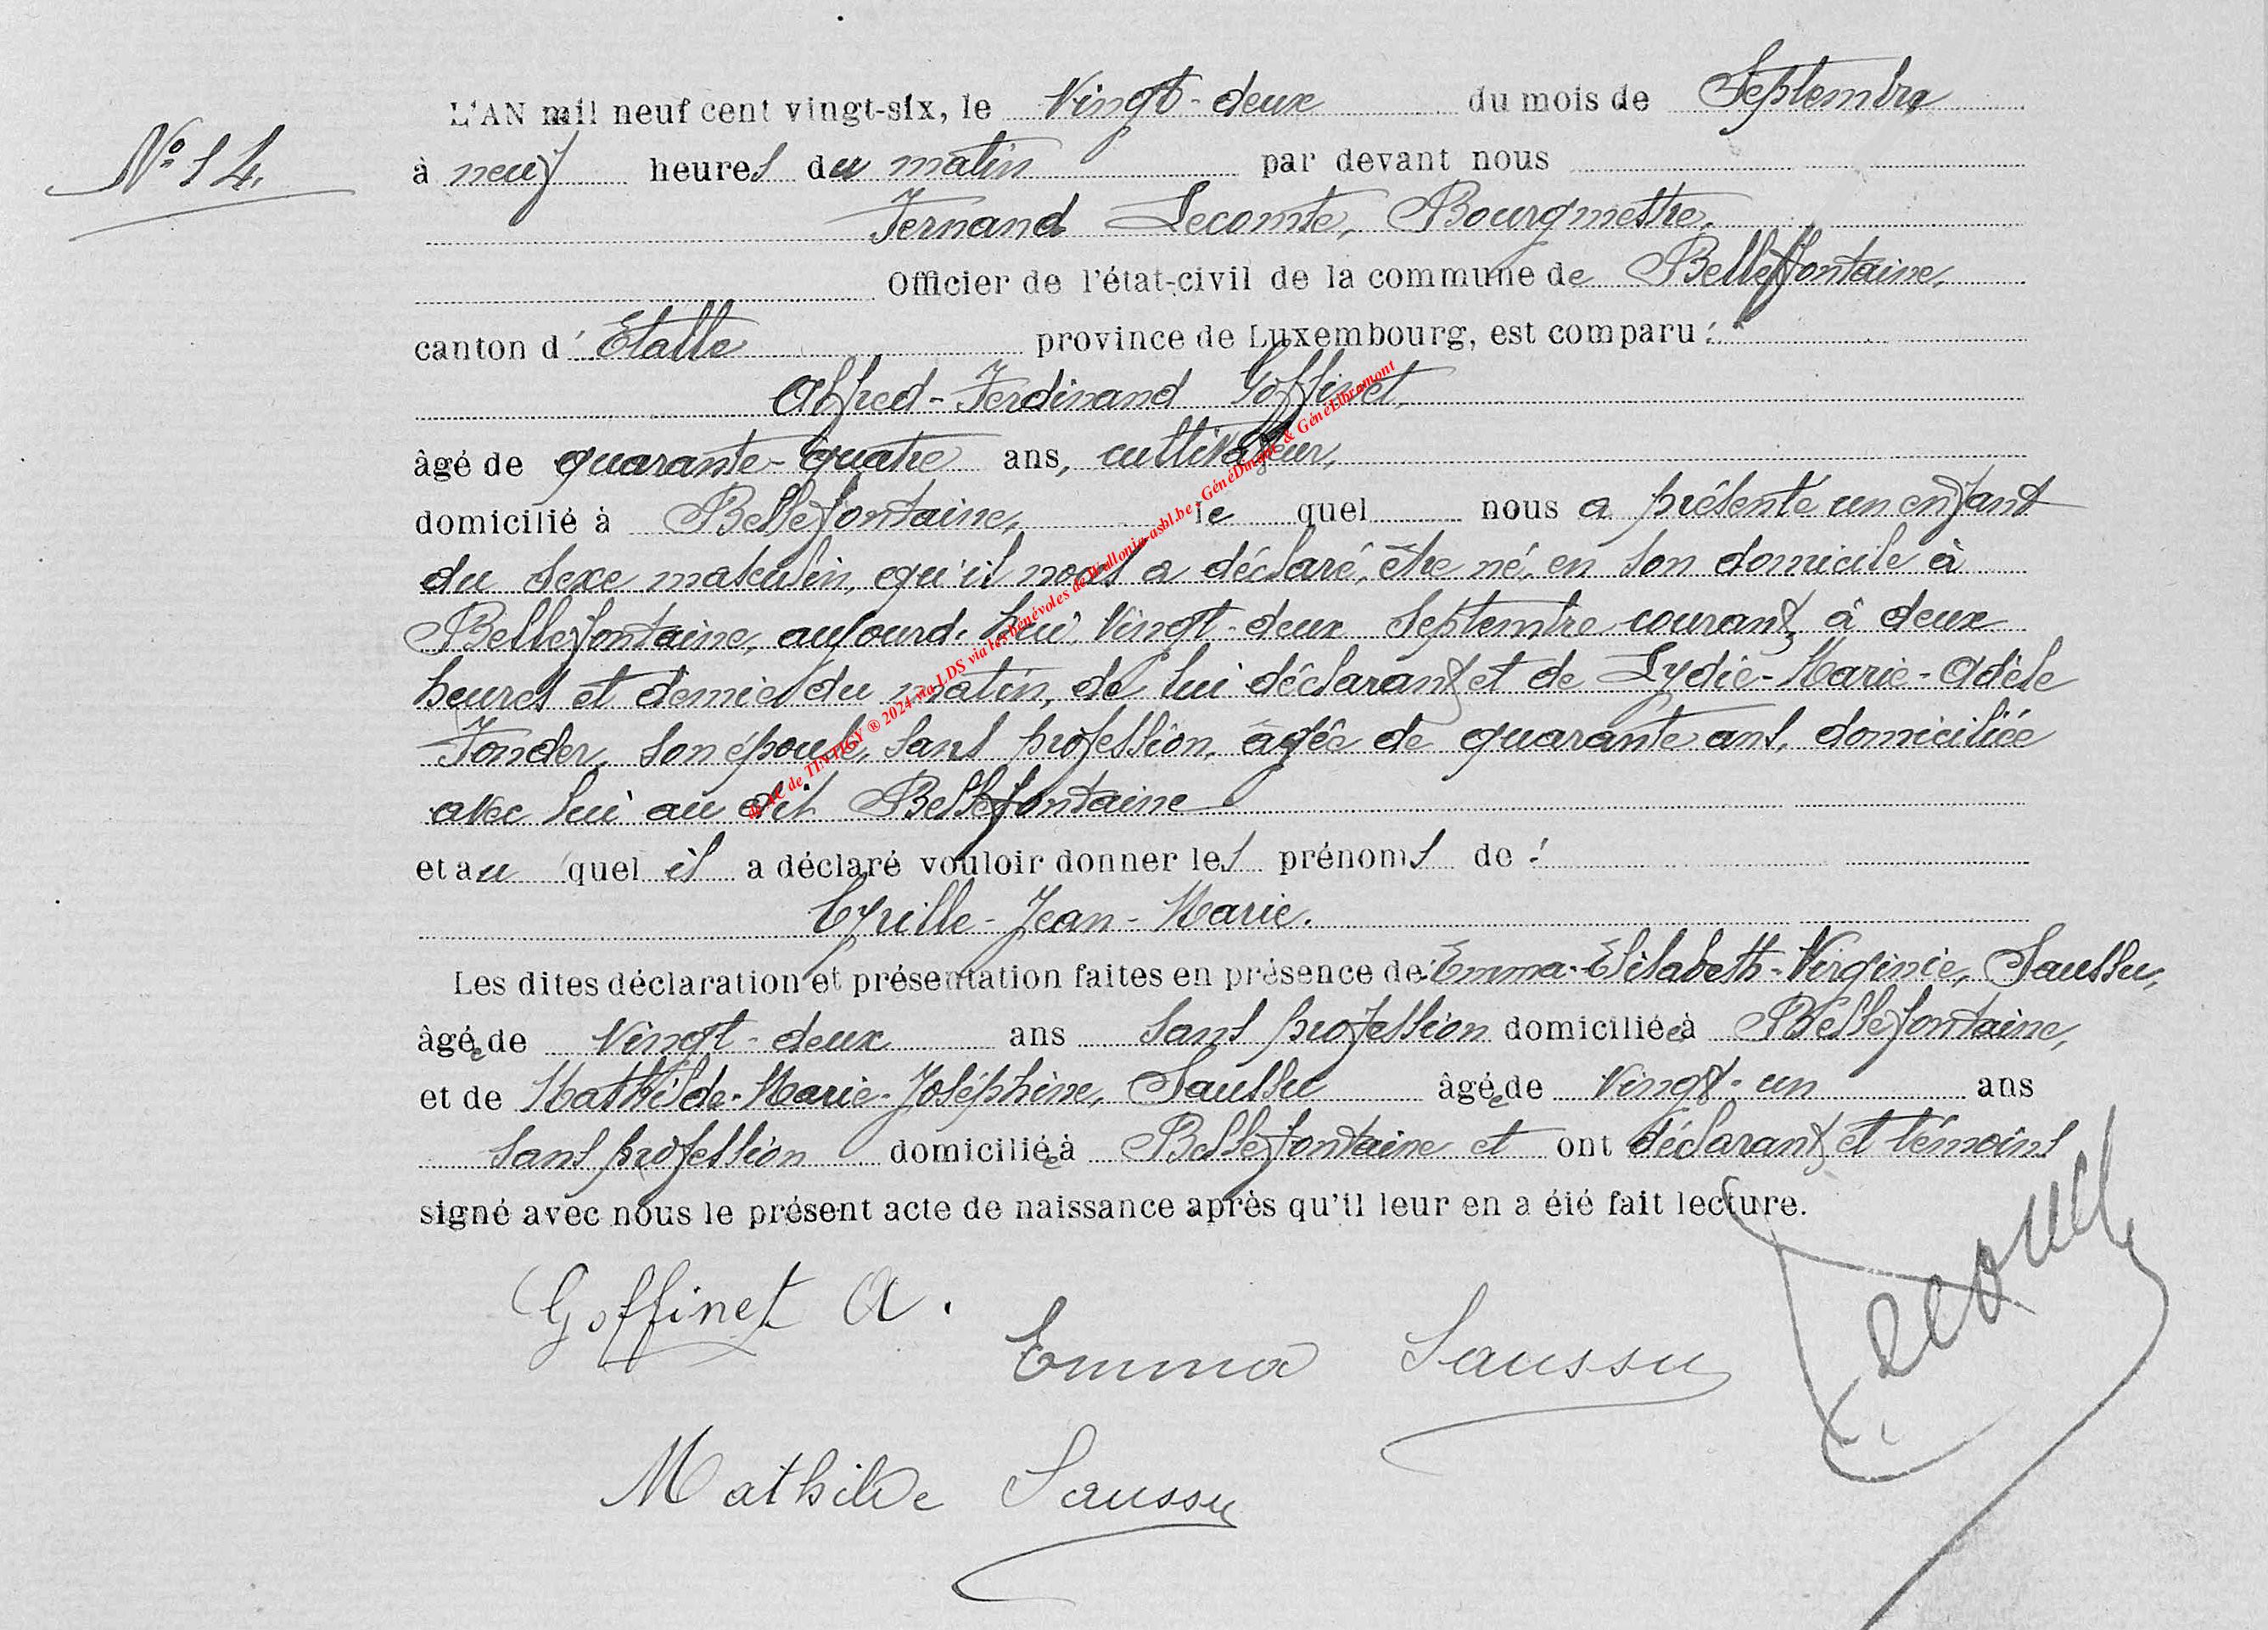 L'AN mil neuf cent vingt-six, le Vingt-deux du mois de Septembre
N° 14.
à neuf heures du matin par devant nous
Fernand Lecomte, Bourgmestre,
Officier de l'état-civil de la commune de Bellefontaine,
canton d'Etalle province de Luxembourg, est comparu :
Alfred-Ferdinand Goffinet,
âgé de quarante-quatre ans, cultivateur,
domicilié à Bellefontaine, le quel nous a présenté un enfant
du sexe masculin, qu'il nous a déclaré, être né, en son domicile à
Bellefontaine, aujourd'hui Vingt-deux Septembre courant, à deux
heures et demie du matin, de lui déclarant et de Lydie-Marie-Adèle
Fonder, son épouse, sans profession, âgée de quarante ans, domiciliée
avec lui au dit Bellefontaine
et au quel il a déclaré vouloir donner les prénoms de :
Cyrille-Jean-Marie.
Les dites déclaration et présentation faites en présence de Emma-Elisabeth-Virginie, Saussu,
âgée de Vingt-deux ans sans profession domiciliée à Bellefontaine,
et de Mathilde-Marie-Joséphine, Saussu âgée de Vingt-un ans
sans profession domiciliée à Bellefontaine et ont déclarant et témoins
signé avec nous le présent acte de naissance après qu'il leur en a été fait lecture.
Goffinet A.
Emma Saussu
Lecomte
Mathilde Saussu
de TINTIGY ® 2024 via LDS via les bénévoles de Wallonia-asbl.be - GénéDinant & GénéLibramont